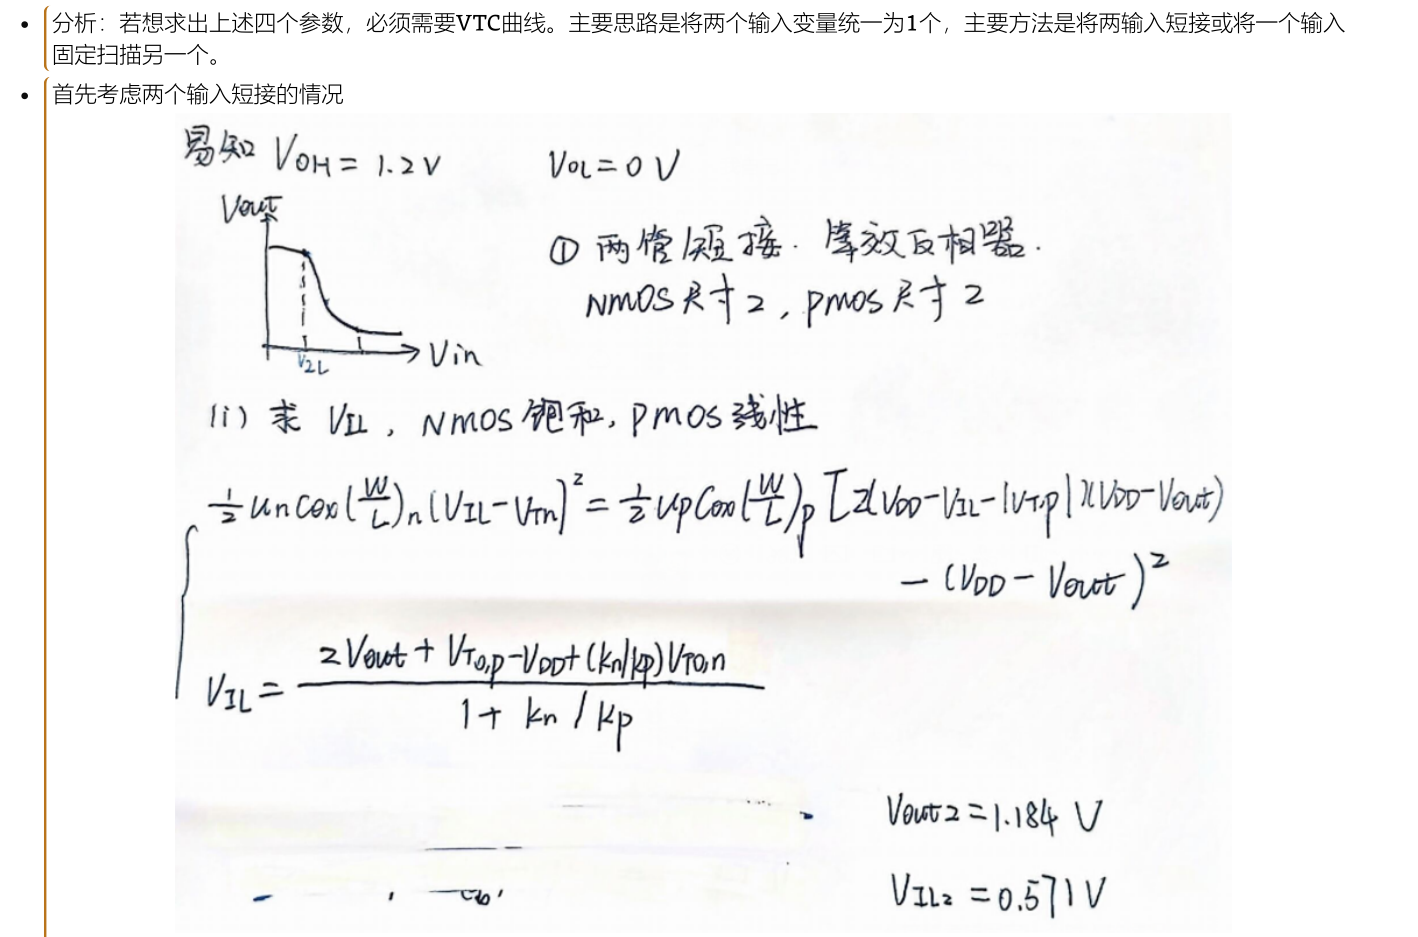 分析：若想求出上述四个参数，必须需要VTC曲线。主要思路是将两个输入变量统一为1个，主要方法是将两输入短接或将一个输入
固定扫描另一个。
首先考虑两个输入短接的情况
易知 VOH = 1.2V VOL = 0 V
Vout
① 两管短接. 等效反相器.
NMOS尺寸2, PMOS尺寸2
Vin
VIL
(i) 求 VIL, NMOS饱和, PMOS线性
1/2 UnCox(W/L)n(VIL-VTn)² = 1/2 UpCox(W/L)p [2(VDD-VIL-|VT,p|)(VDD-Vout)
- (VDD - Vout)²
VIL = 2Vout + VTO,p-VDD+(kn/kp)VTO,n
1 + kn / kp
Vout2 = 1.184 V
VIL2 = 0.571V